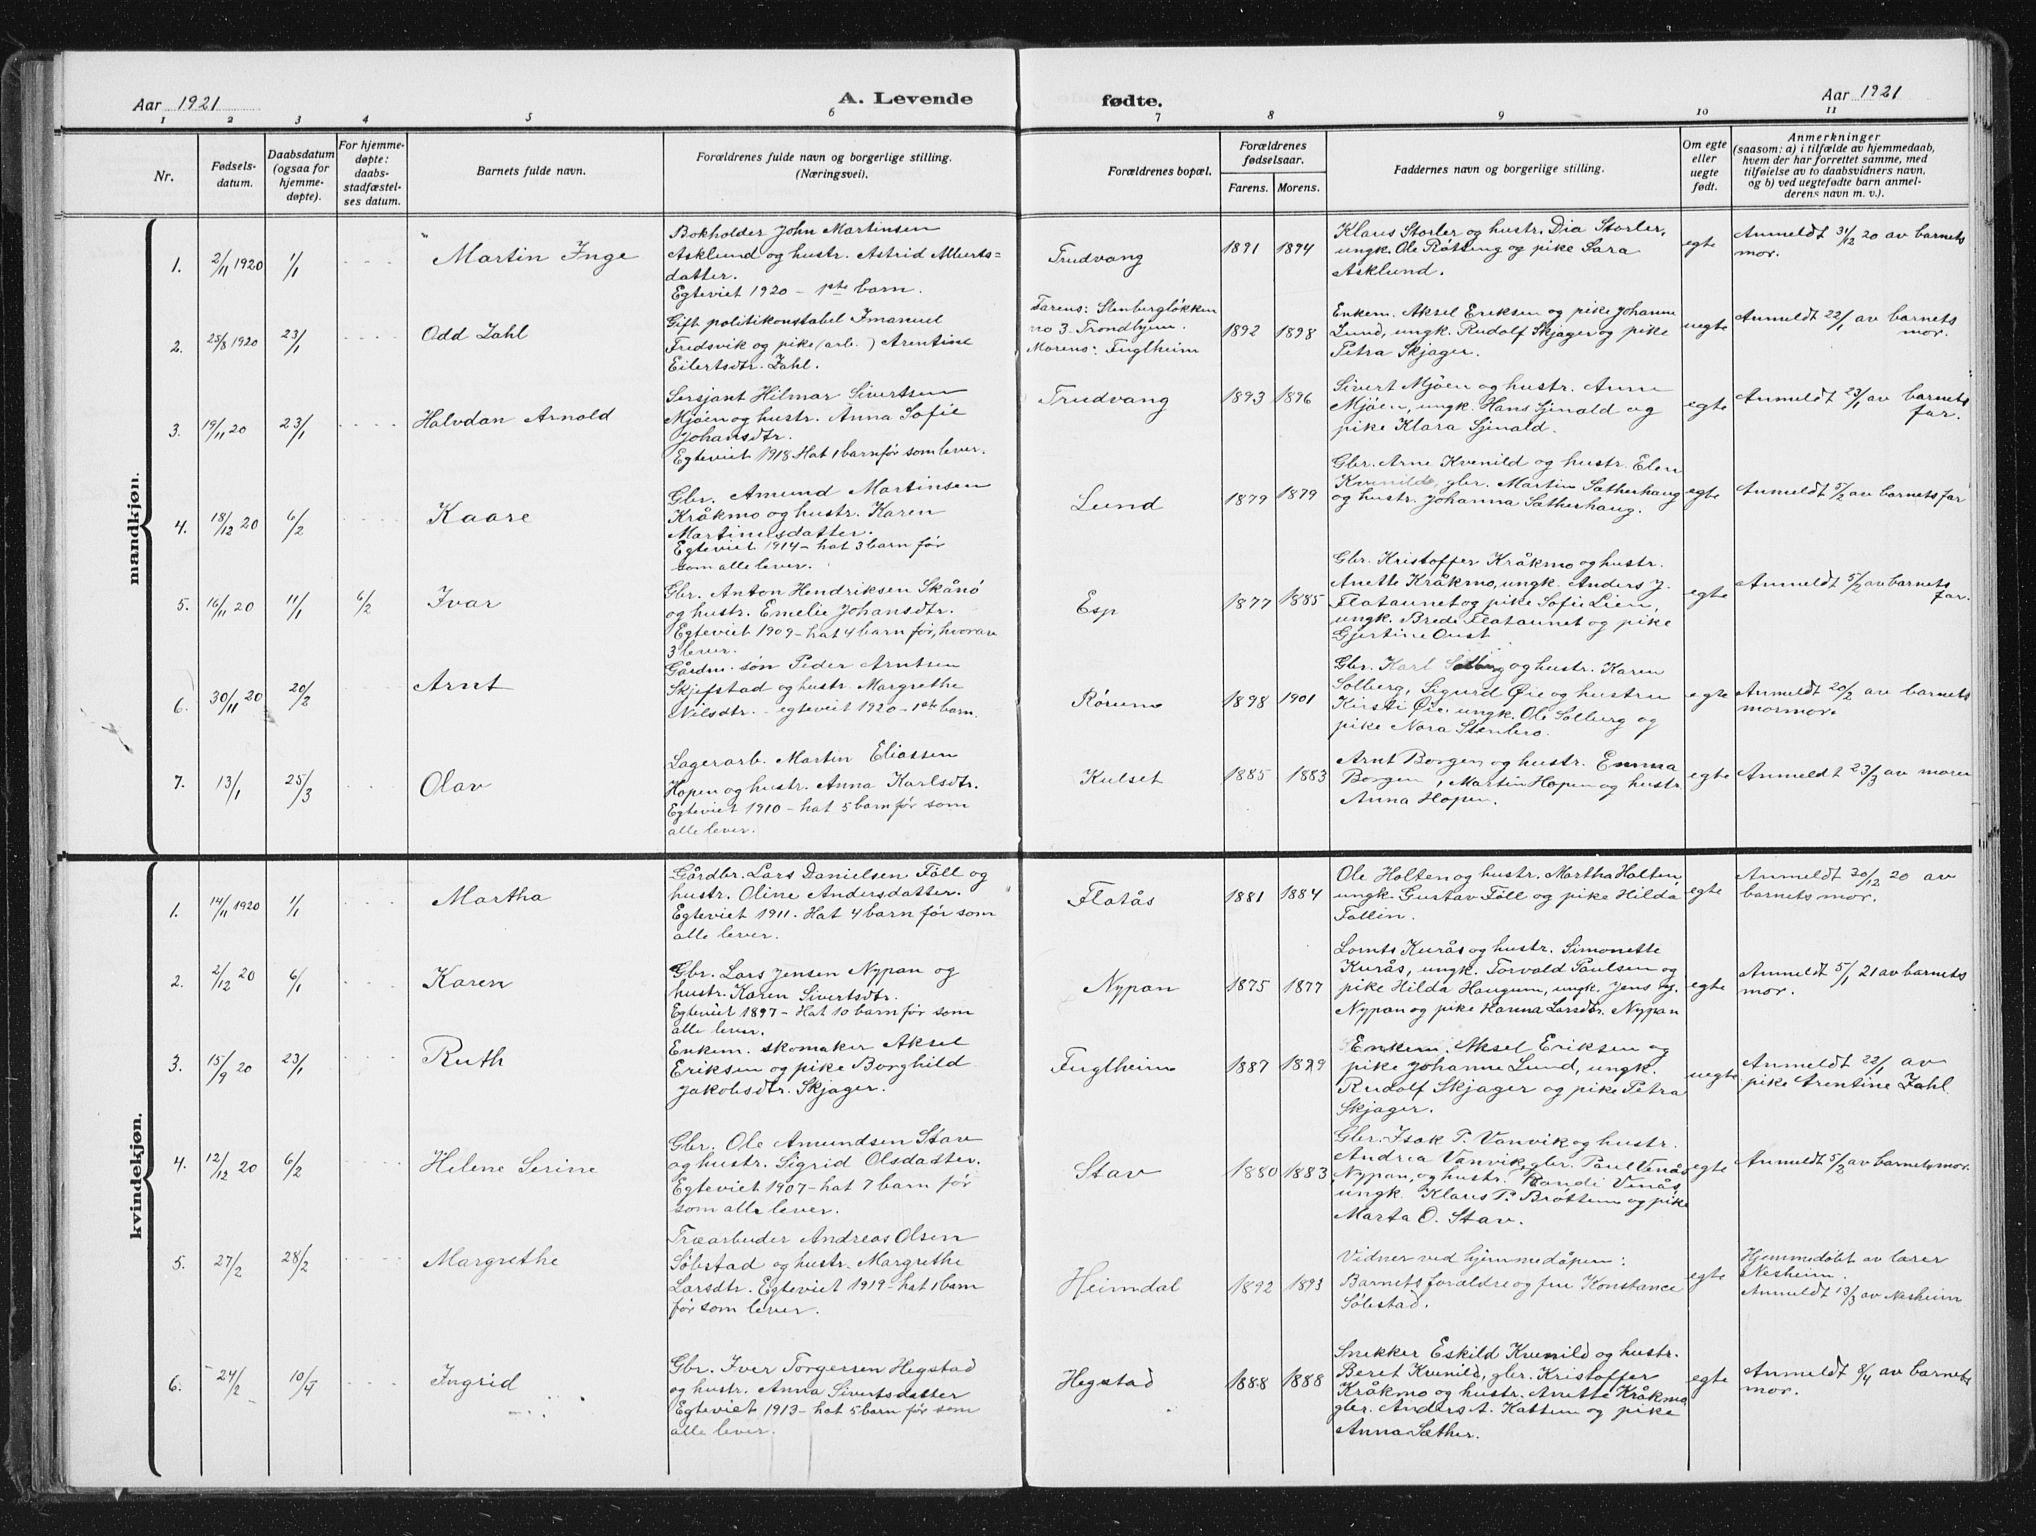 Aar 1921
A. Levende
fødte.
Aar 1921
1 2 3 4 5 6 7 8 9 10 11
Nr.
Fødsels-
datum.
Daabsdatum
(ogsaa for
hjemme-
døpte).
For hjemme-
døpte:
daabs-
stadfæstel-
ses datum.
Barnets fulde navn.
Forældrenes fulde navn og borgerlige stilling.
(Næringsvei).
Forældrenes bopæl.
Forældrenes
fødselsaar.
Farens. Morens.
Faddernes navn og borgerlige stilling.
Om egte
eller
uegte
født.
Anmerkninger
(saasom: a) i tilfælde av hjemmedaab,
hvem der har forrettet samme, med
tilføielse av to daabsvidners navn,
og b) ved uegtefødte barn anmel-
derens navn m. v.).
mandkjøn.
1. 2/11 1920 1/1 Martin Inge
Bokholder John Martinsen
Asklund og hustr. Astrid Alberts=
datter.
Egteviet 1920 - 1ste barn.
Trudvang 1891 1894
Klaus Storler og hustr. Dia Storler,
ungk. Ole Røtting og pike Sara
Asklund.
egte
Anmeldt 31/12 20 av barnets
mor.
2. 25/8 1920 23/1 Odd Zahl
Gift politikonstabel Imanuel
Fredsvik og pike (arb. ) Arentine
Eilertsdtr. Zahl.
Farens: Stenbergløkken
no 3. Trondhjem.
Morens: Fuglheim
1892 1898
Enkem. Aksel Eriksen og pike Johanne
Lund, ungk. Rudolf Skjager og pike
Petra Skjager.
uegte
Anmeldt 22/1 av barnets
mor.
3. 19/11 20 23/1 Halvdan Arnold
Sersjant Hilmar Sivertsen
Mjøen og hustr. Anna Sofie
Johansdtr.
Egteviet 1918 Hat 1 barn før som lever.
Trudvang 1893 1896
Sivert Mjøen og hustr. Anne
Mjøen, ungk. Hans Sjenald og
pike Klara Sjenald.
egte
Anmeldt 23/1 av barnets
far.
4. 18/12 20 6/2 Kaare
Gbr. Amund Martinsen
Kråkmo og hustr. Karen
Martinusdatter.
Egteviet 1914 - hat 3 barn før
som alle lever.
Lund 1879 1879
Gbr. Arne Kvenild og hustr. Elen
Kvenild, gbr. Martin Sætherhaug
og hustr. Johanna Sætherhaug.
egte
Anmeldt 5/2 av barnets far
5. 16/11 20 11/1 6/2 Ivar
Gbr. Anton Hendriksen Skånø
og hustr. Emelie Johansdtr.
Egteviet 1909 - hat 4 barn før, hvorav
3 lever.
Esp 1877 1885
Gbr. Kristoffer Kråkmo og hustr.
Anette Kråkmo, ungk. Anders J.
Flataunet og pike Sofie Lien,
ungk. Brede Flataunet og pike
Gjertine Oust
egte
Anmeldt 5/2 av barnets
far.
6. 30/11 20 20/2 Arnt
Gårdm. søn Peder Arntsen
Skjefstad og hustr. Margrethe
Nilsdtr. - egteviet 1920 - 1ste barn.
Rørum 1898 1901
Gbr. Karl Solberg og hustr. Karen
Solberg, Sigurd Øie og hustru
Kirsti Øie, ungk. Ole Solberg og
pike Nora Stenbro.
egte
Anmeldt 20/2 av barnets
mormor.
7. 13/1 25/3 Olav
Lagerarb. Martin Eliassen
Hopen og hustr. Anna Karlsdtr.
Egteviet 1910 - hat 5 barn før som
alle lever.
Kulset 1885 1883
Arnt Borgen og hustr. Emma
Borgen, Martin Hopen og hustr
Anna Hopen.
egte
Anmeldt 23/3 av moren
kvindekjøn.
1. 14/11 1920 1/1 Martha
Gårdbr. Lars Danielsen Föll og
hustr. Oline Andersdatter.
Egteviet 1911. Hat 4 barn før som
alle lever.
Flatås 1881 1884
Ole Holten og hustr. Martha Holten,
ungk. Gustav Föll og pike Hilda
Follin.
egte
Anmeldt 20/12 20 av
barnets mor.
2. 2/12 20 6/1 Karen
Gbr. Lars Jensen Nypan og
hustr. Karen Sivertsdtr.
Egteviet 1897 - Hat 10 barn før som
alle lever.
Nypan 1875 1877
Lornts Kurås og hustr. Simonette
Kurås, ungk. Torvald Paulsen og
pike Hilda Haugum, ungk. Jens og
Nypan og pike Hanna Larsdtr. Nypan
egte
Anmeldt 5/1 21 av barnets
mor.
3. 15/9 20 23/1 Ruth
Enkem. skomaker Aksel
Eriksen og pike Borghild
Jakobsdtr. Skjager.
Fuglheim 1887 1899
Enkem. Aksel Eriksen og
pike Johanne Lund, ungk.
Rudolf Skjager og pike Petra
Skjager.
uegte
Anmeldt 22/1 av
pike Arentine Zahl.
4. 12/12 20 6/2 Helene Serine
Gbr. Ole Amundsen Stav
og hustr. Sigrid Olsdadter.
Egteviet 1907 - hat 7 barn før
som alle lever.
Stav 1880 1883
Gbr. Isak P. Vanvik og hustr.
Andrea Vanvik, gbr. Paul Venås
Nypan, og hustr. Randi Venås,
ungk. Klaus P. Brøttem og pike
Marta O. Stav.
egte
Anmeldt 5/2 av barnets mor
5. 27/2 28/2 Margrethe
Træarbeider Andreas Olsen
Söbstad og hustr. Margrethe
Larsdtr. Egteviet 1919 - hat 1 barn
før som lever.
Heimdal 1892 1893
Vidner ved hjemmedåpen:
Barnets forældre og fru Konstance
Söbstad.
egte
Hjemmedøbt av lærer
Nesheim.
Anmeldt 13/3 av Nesheim
6. 24/2 10/4 Ingrid
Gbr. Iver Torgersen Hegstad
og hustr. Anna Sivertsdatter
Egteviet 1913 - hat 5 barn før som
alle lever.
Hegstad 1888 1888
Snekker Eskild Kvenild og hustr.
Beret Kvenild, gbr. Kristoffer
Kråkmo og hustr. Anette Kråkmo,
gbr. Anders A. Hattem og pike
Anna Sæther.
egte
Anmeldt 8/4 av barnets
mor.